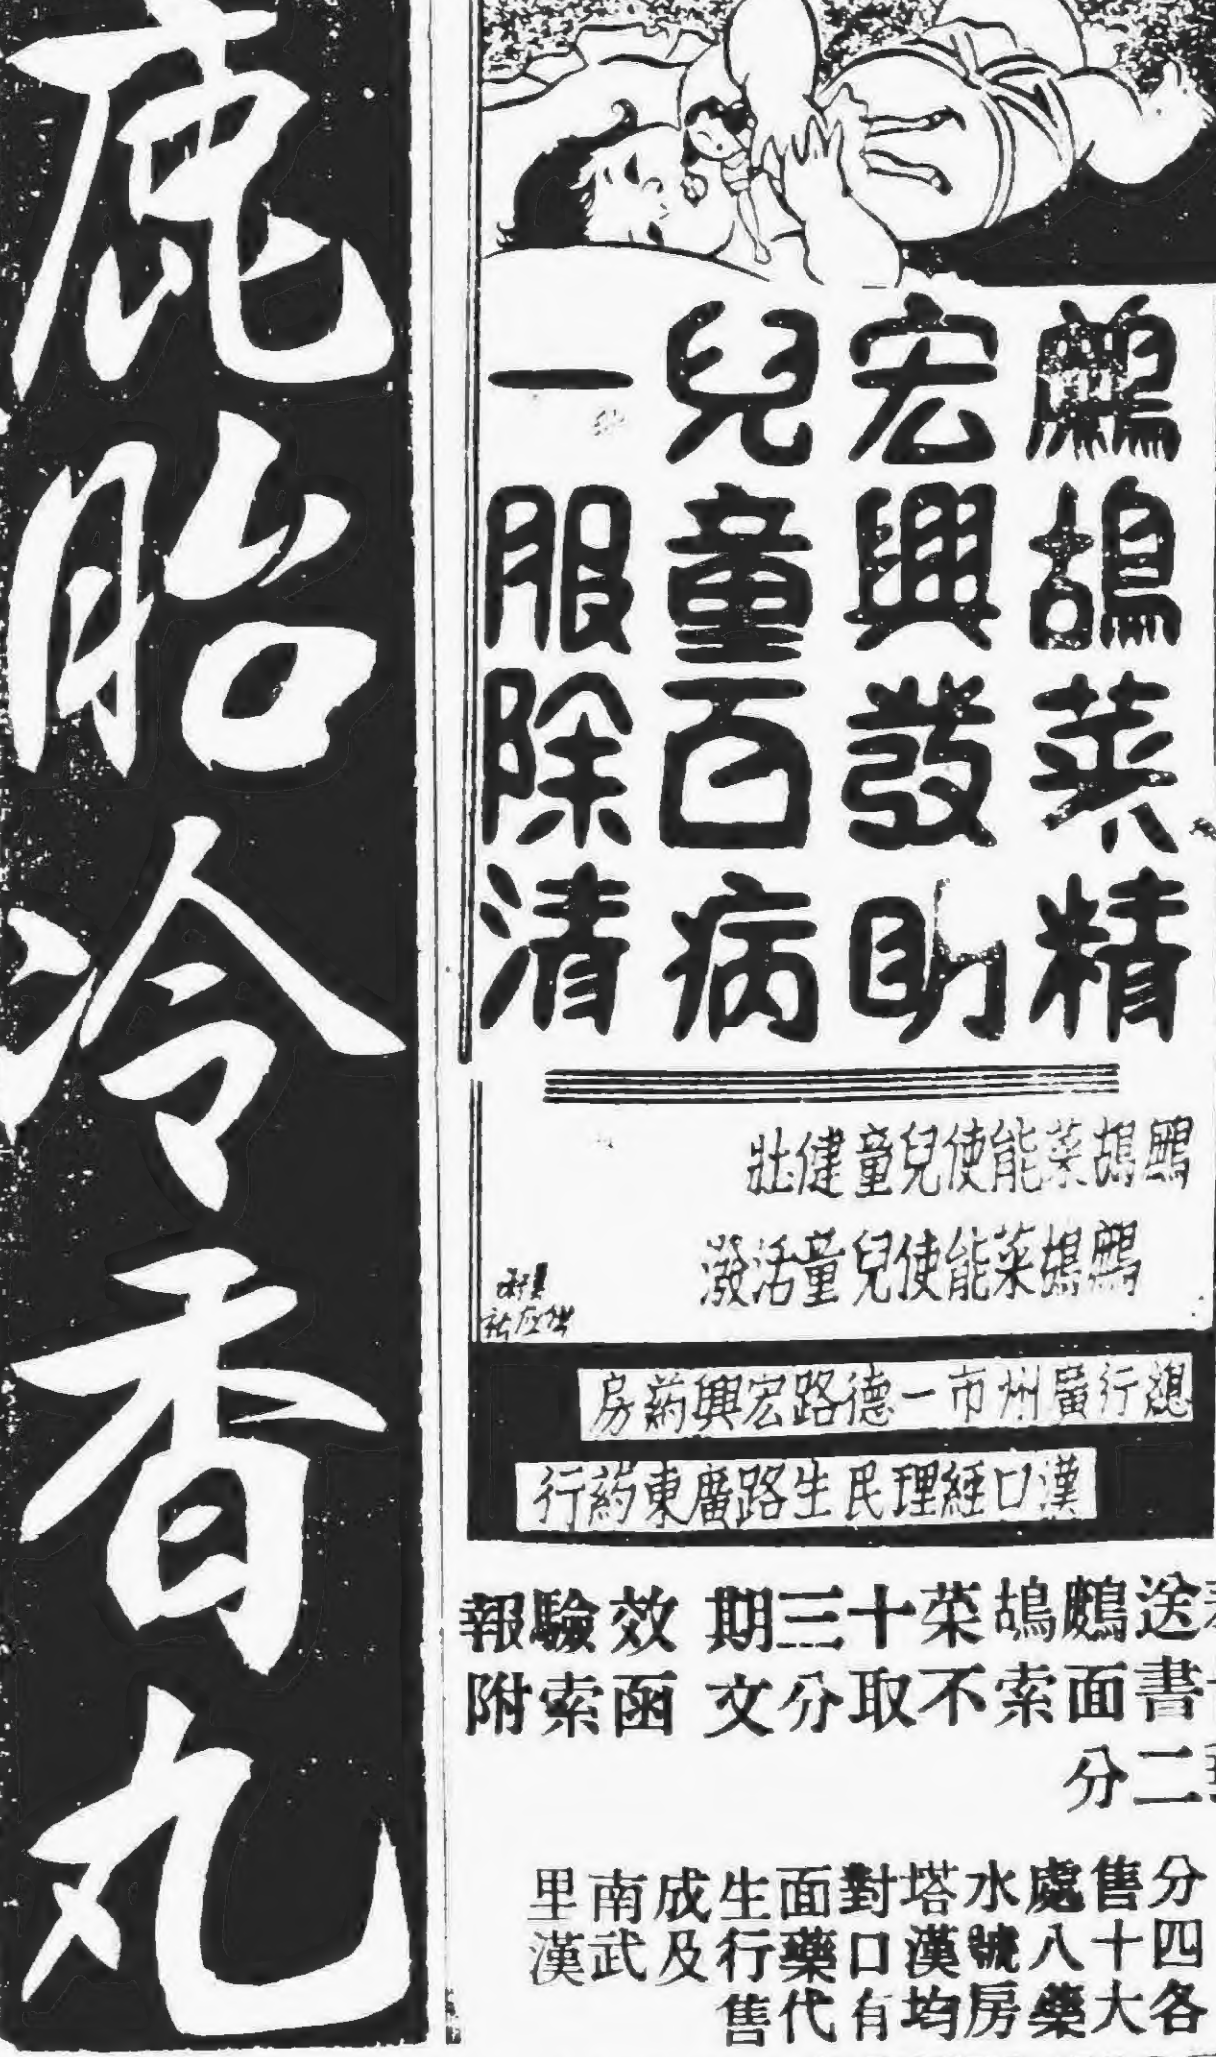 鷓鴣菜精
宏興發明
兒童百病
一服除清
鷓鴣菜能使兒童健壯
鷓鴣菜能使兒童活潑
總行廣州市一德路宏興葯房
漢口經理民生路廣東葯行
送鷓鴣菜十三期效驗報
書面索不取分文函索附
二分
分售處水塔對面生成南里
四十八號漢口藥行及武漢
各大藥房均有代售
鹿胎冷香丸